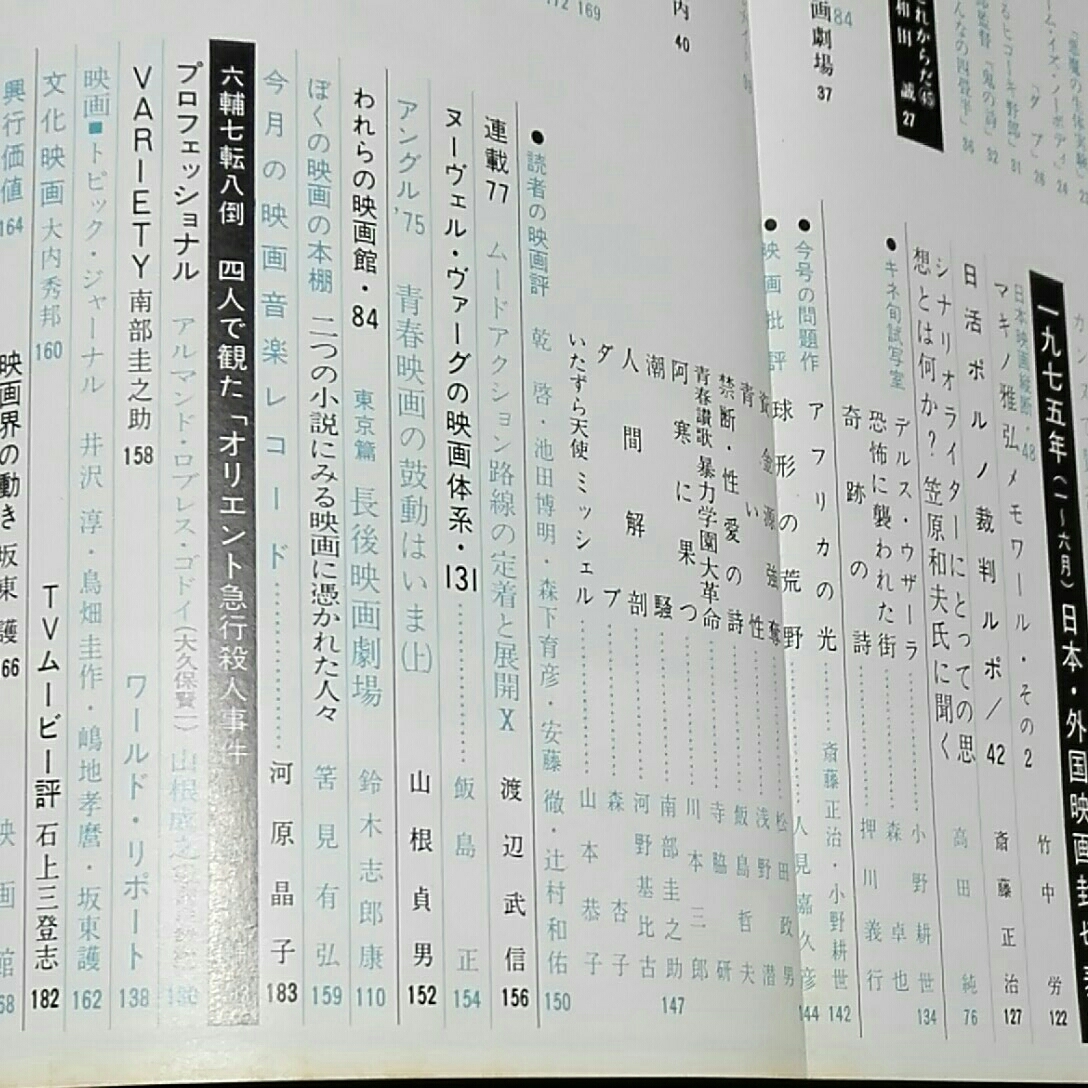 「悪魔の生体実験」 23
ーム・イズ・ノーボディ 24
「タブ」 26
るヒコーキ野郎」 31
部監督「鬼の詩」 32
んなの四畳半」 36
れからだ㊺
和田 誠 27
84
画劇場 37
内 40
172 169
一九七五年（一〜六月）日本・外国映画封切
日本映画縦断・48
マキノ雅弘メモワール・その2 竹中 労 122
日活ポルノ裁判ルポ/42 斎藤正治 127
シナリオライターにとっての思
想とは何か？ 笠原和夫氏に聞く 高田 純 76
●キネ旬試写室
デルス・ウザーラ 小野耕世 134
恐怖に襲われた街 森 卓也
奇跡の詩 押川義行
●今号の問題作
アフリカの光 斎藤正治・小野耕世 142
●映画批評
球形の荒野 人見嘉久彦 144
資金源強奪 松田政男
青い性 浅野 潜
禁断・性愛の詩 飯島哲夫
青春讃歌 暴力学園大革命 寺脇 研
阿寒に果つ 川本三郎
潮騒 南部圭之助 147
人間解剖 河野基比古
ダブ 森 杏子
いたずら天使ミッシェル 山本恭子
●読者の映画評 乾 啓・池田博明・森下育彦・安藤 徹・辻村和佑 150
連載77 ムードアクション路線の定着と展開X 渡辺武信 156
ヌーヴェル・ヴァーグの映画体系・131 飯島 正 154
アングル'75 青春映画の鼓動はいま(上) 山根貞男 152
われらの映画館・84 東京篇 長後映画劇場 鈴木志郎康 110
ぼくの映画の本棚 二つの小説にみる映画に憑かれた人々 筈見有弘 159
今月の映画音楽レコード 河原晶子 183
六輔七転八倒 四人で観た「オリエント急行殺人事件
プロフェッショナル アルマンド・ロブレス・ゴドイ(大久保賢一)
VARIETY 南部圭之助 158 ワールド・リポート 138
映画■トピック・ジャーナル 井沢 淳・鳥畑圭作・嶋地孝麿・坂東護 162
文化映画 大内秀邦 160 TVムービー評 石上三登志 182
興行価値 164
映画界の動き 坂東 護 66
映画館 68